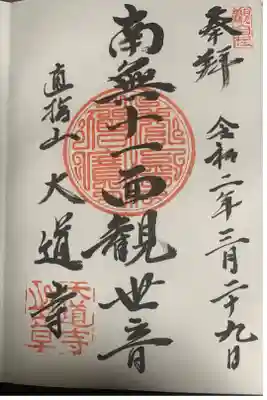 奉拝
令和二年三月二十九日
南無十一面觀世音
直指山 大道寺